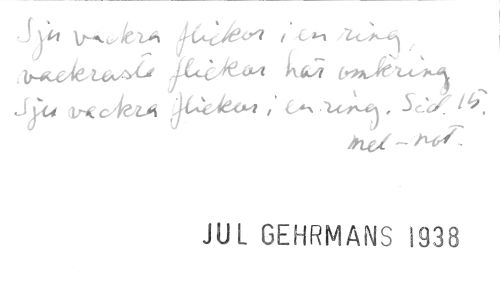 Sju vackra flickor i en ring,
vackraste flickor här omkring
Sju vackra flickor i en ring. Sid. 15.
mel-not.
JUL GEHRMANS 1938